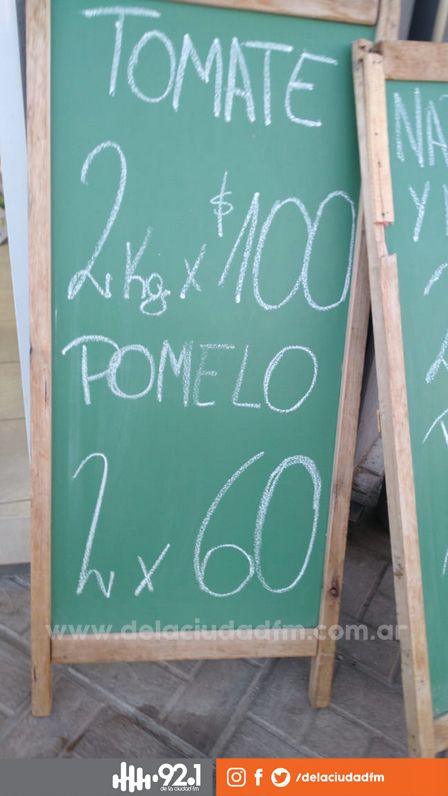 TOMATE
2kg x $100
POMELO
2 x 60
NA
Y
www.delaciudadfm.com.ar
92.1
de la ciudad fm
/delaciudadfm